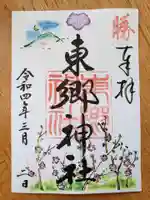 勝
奉拝
東郷神社
令和四年三月二日